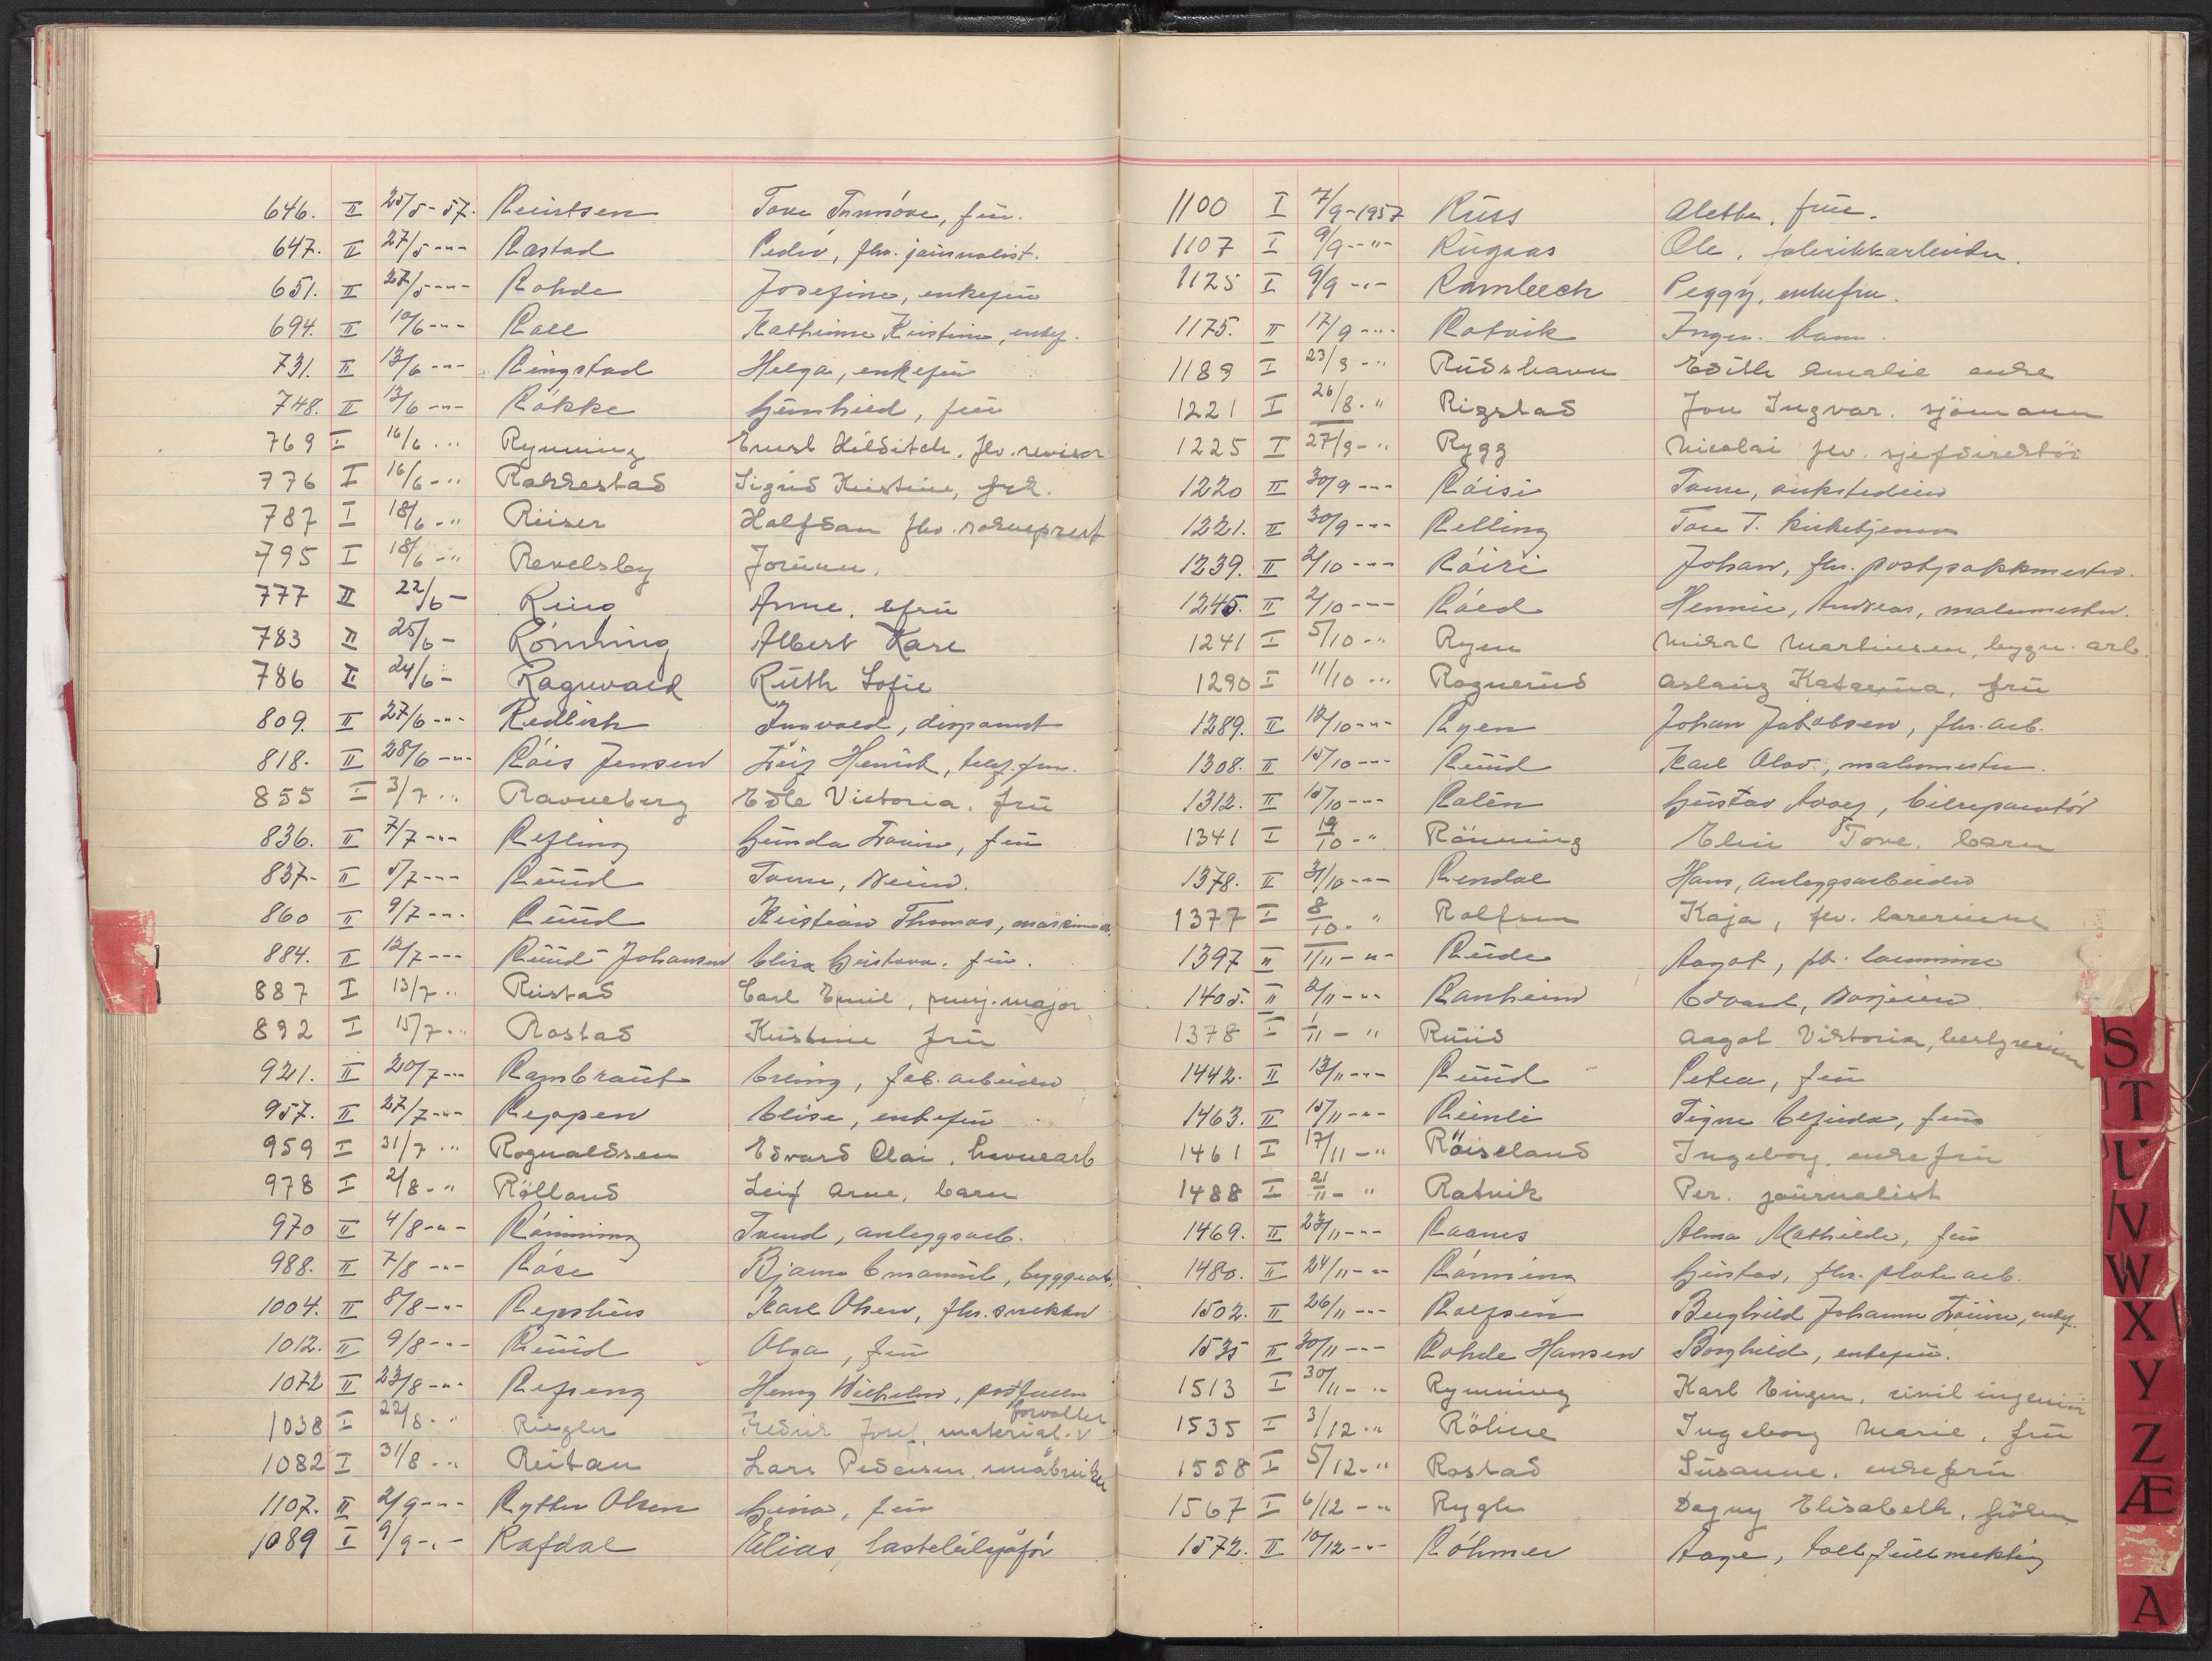 646. II 25/5-57. Tove Synnöve, frü.
647. II 27/5 -"- Rastad Peder, fhv. joürnalist.
651. II 27/5 -"- Rohde Josefine, enkefrü
694. II 10/6 -"- Roll Kathinne Kristine, enkef.
731. II 13/6 -"- Ringstad Helga, enkefrü
748. II 13/6 -"- Rökke Günhild, frü
769 I 16/6 -"- Rynning Ernst Hilditch. fhv. revisor
776 I 16/6 -"- Rakkestad Sigrid Kristine, frk.
787 I 18/6 -" Riiser Halfdan fhv. sokneprest
795 I 18/6 -" Revelsby Jorünn.
777 II 22/6 - Ring Anne, frü
783 II 25/6 - Rönning Albert Kare
786 II 24/6 - Ragnvald Rüth Sofie
809. II 27/6 -"- Redlich Ingvald, disponent
818. II 28/6 -"- Röis Jensen Henrik, telef.
855 I 3/7 -" Ravneberg Edle Victoria. frü
836. II 7/7 -"- Refling Günda Loüise, frü
837. II 5/7 -"- Rüüd
860 II 9/7 -"- Rüüd Kristian Thomas,
884. II 12/7 -"- Rüüd-Johansen Elisa Güstava. frü.
887 I 13/7 -" Rüstad Carl Emil, penj. major
892 I 15/7 -" Rostad Kristine frü
921. II 20/7 -"- Rambraüt Erling, fab. arbeider
957. II 27/7 -"- Reppen Elise, enkefrü
959 I 31/7 -" Rognaldsen Edvard Olai, havnearb
978 I 2/8 -" Rölland Leif Arne, barn
970 II 4/8 -"- Rönning Trond, anleggsarb.
988. II 7/8 -"- Röse Bjarne Emanüel, byggearb.
1004. II 8/8 -"- Repshüs Karl Olsen, fhv. snekker
1012. II 9/8 -"- Rüüd Olga, frü
1072 II 23/8 -"- Refseng Henry Wilhelm,
1038 I 22/8 -" Riegler Fredrik Josef, material. v forvalter
1082 I 31/8 -" Reitan Lars Pedersen, småbrüker
1107. II 2/9 -"- Rytter Olsen Gina, frü
1089 I 9/9 -"- Rafdal Elias, lastebilsjåför
1100 I 7/9-1957 Rüss Alethe, frue.
1107 I 9/9 -"- Rügaas Ole, fabrikkarbeider.
1125 I 9/9 -"- Rambech Peggy, enkefru.
1175. II 17/9 -"- Rotvik Inger. barn.
1189 I 23/9 -" Rüdshavn Edith Amalie enke
1221 I 26/8 -" Rigstad Jon Ingvar. sjömann
1225 I 27/9 -" Rygg Nicolai fhv. sjefdirektör
1220 II 30/9 -"- Röisi
1221. II 30/9 -"- Relling Tore T. kirketjener
1239. II 2/10 -"- Röiri Johan, fhv. postpakkmester.
1245. II 2/10 -"- Röed Hennin, Andreas, malermester.
1241 I 5/10 -" Ryen Mikal Martinsen, bygn. arb.
1290 I 11/10 -" Rognerüd Aslaüg Katarina, frü
1289. II 12/10 -"- Ryen Johan Jakobsen, fhv. arb.
1308. II 15/10 -"- Rüüd Karl Olav., malermester.
1312. II 15/10 -"- Rolén Güstav Aveg, bilreparatör
1341 I 19/10 -" Rönning Elin Tove. barn
1378. II 31/10 -"- Rendal Hans, anleggsarbeider
1377 I 8/10 -" Rolfsen Kaja, fhv. lærerinne
1397 II 1/11 -"- Rüde Aagot,
1405. II 2/11 -"- Ranheim Edvard,
1378 I 1/11 -" Rüüd Aagot Viktoria, bestyrerinne
1442. II 13/11 -"- Rüüd Petra, frü
1463. II 15/11 -"- Reinli Signe Elfrida, frü
1461 I 17/11 -" Röiseland Ingeborg. enkefrü
1488 I 21/11 -" Ratvik Per. joürnalist
1469. II 23/11 -"- Raanes Alma Mathilde, frü
1480. II 24/11 -"- Rönning Güstav, fhv. platearb.
1502. II 26/11 -"- Rolfsen Bergliud Johanne Loüise, enkef.
1535 II 30/11 -"- Rohde Hansen Borghild, enkefrü.
1513 I 30/11 -" Rynning Karl Eügen, sivil ingeniör
1535 I 3/12 -" Röhne Ingeborg Marie. frü
1558 I 5/12 -" Rostad Süsanne. enkefrü
1567 I 6/12 -" Rygh Dagny Elisabeth, fröken
1572. II 10/12 -"- Röhmer Aage, tollfüllmektig
S
T
U
V
W
X
Y
Z
Æ
A